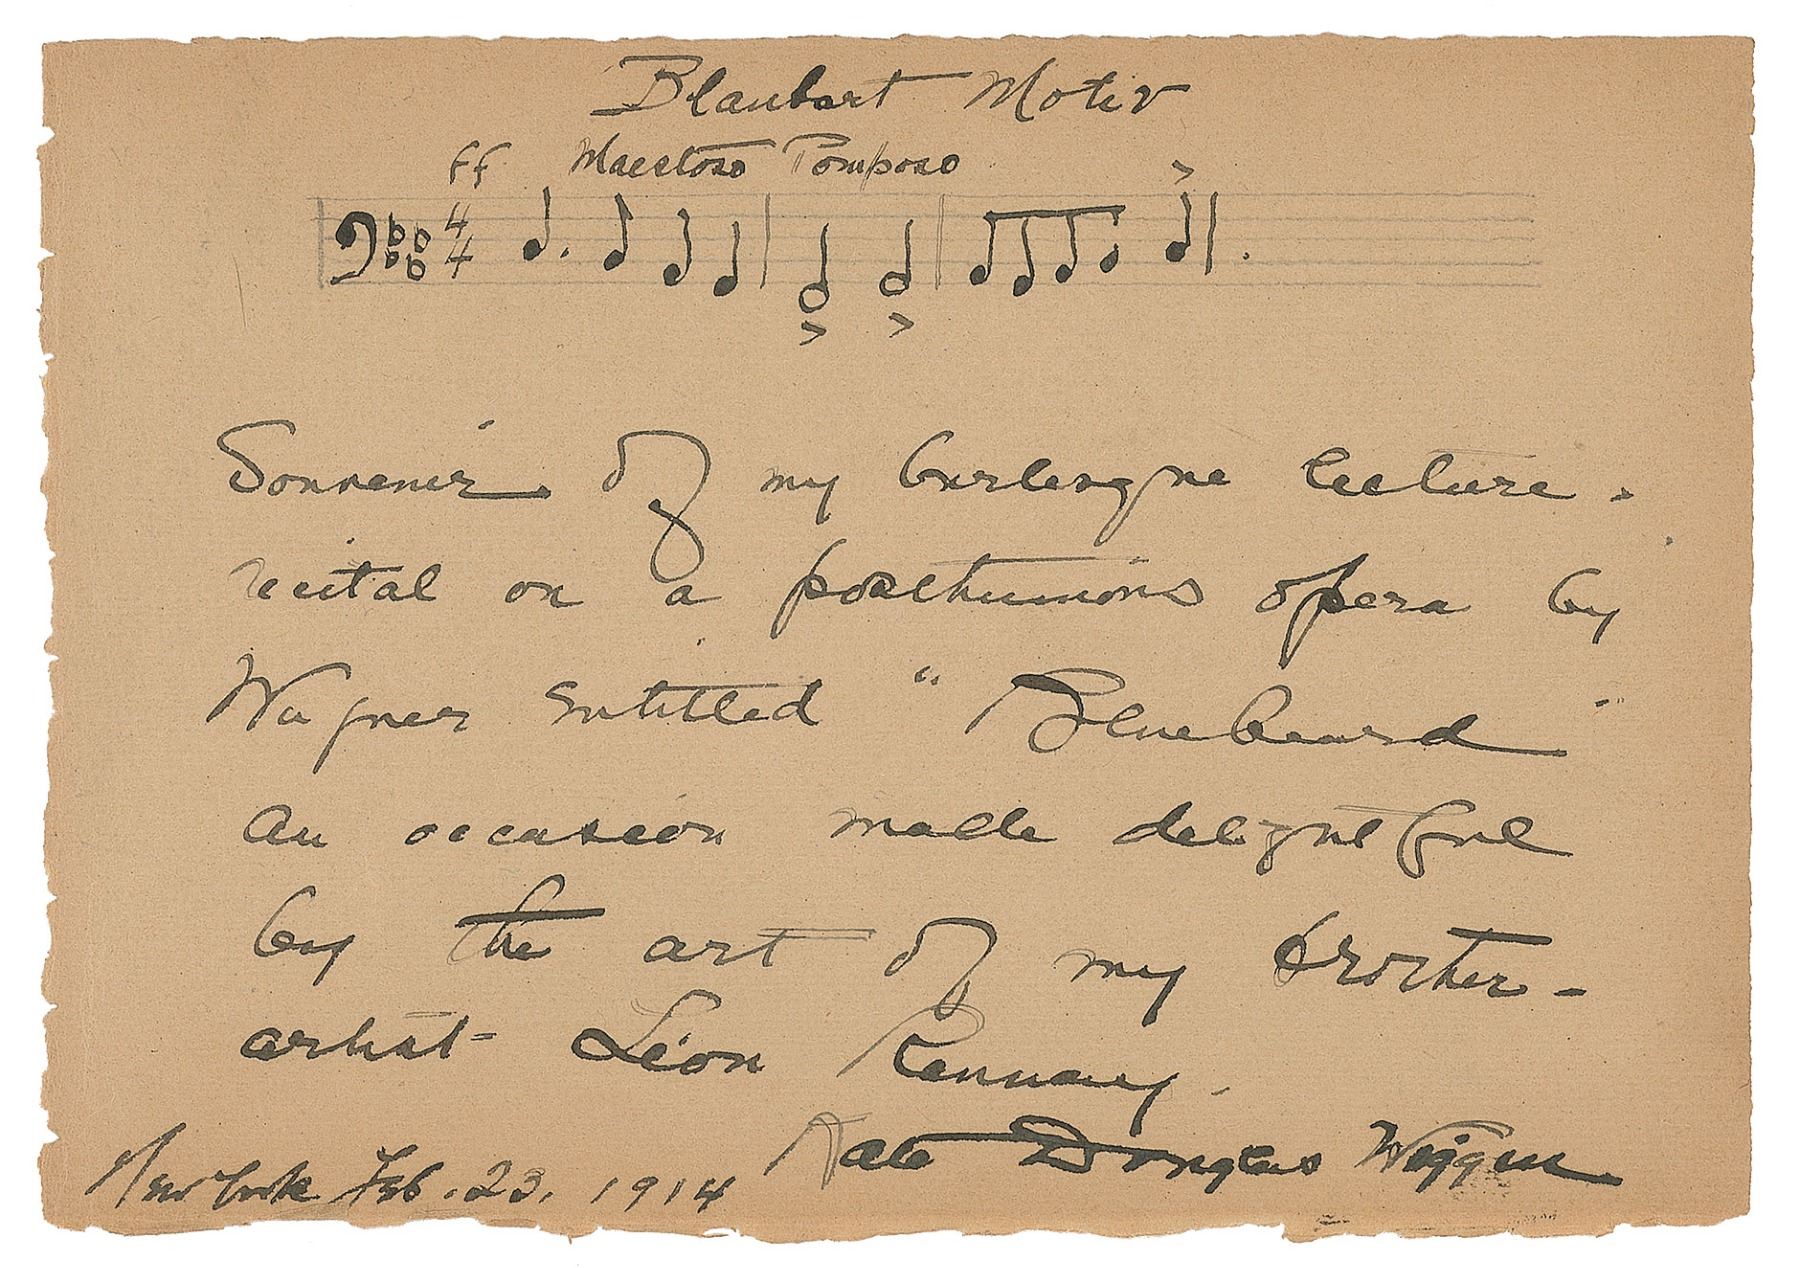 Blaubart Motiv
ff Maestoso Pomposo
4
4
Souvenir of my burlesque lecture-
recital on a posthumous opera by
Wagner entitled "Bluebeard"
An occasion made delightful
by the art of my brother-
artist Léon Rennay.
Kate Douglas Wiggin
New York Feb. 23. 1914